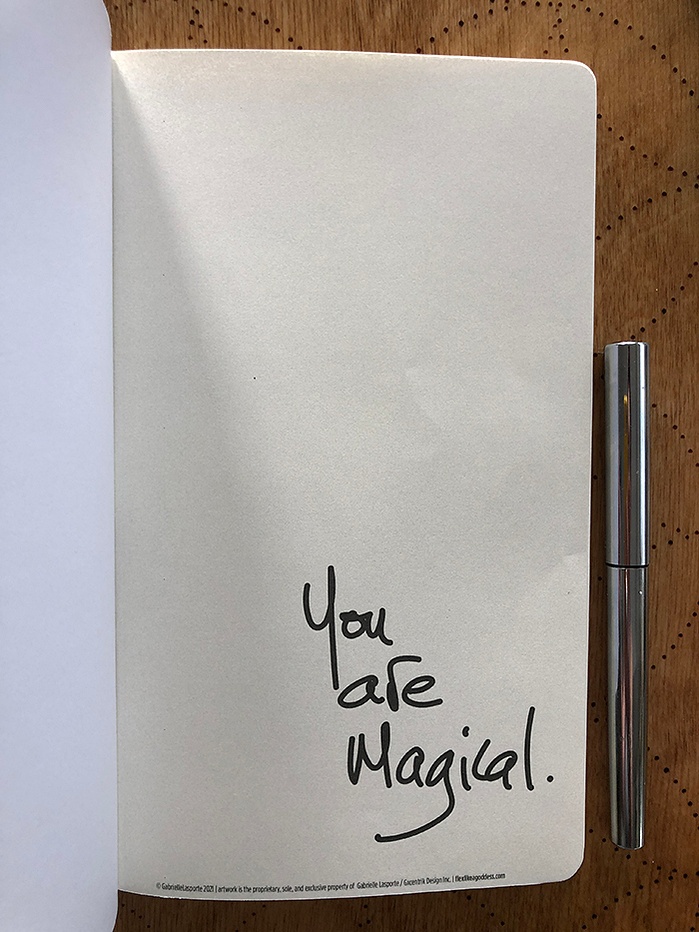 You
are
Magical.
© GabrielleLasporte 2021 | artwork is the proprietary, sole, and exclusive property of Gabrielle Lasporte / Excentrik Design Inc. | flexlikeagoddess.com